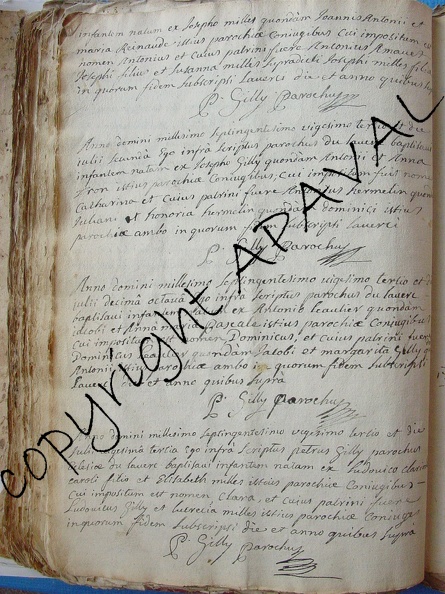 infantem natum ex Josepho milles quondam Joannis Antonii et
maria Reinaude istius parochiæ Coniugibus Cui impositum est
nomen Antonius et cuius patrini fuere Antonius
Josephi filius et Susanna milles supradicti Josephi milles filia
in quorum fidem subscripsi Laverci die et anno quibus supra
P. Gilly Parochus
Anno domini millesimo septingentesimo vigesimo tertio et die
julii secunda Ego infra scriptus parochus du laverc baptisavi
infantem natam ex Josepho Gilly quondam Antonii et Anna
istius parochiæ Coniugibus; cui impositum fuit nomen
Catharina et cuius patrini fuere Antonius hermelin quondam
Juliani et honoria hermelin quondam dominici istius
parochiæ ambo in quorum fidem subscripsi Laverci
P. Gilly Parochus
Anno domini millesimo septingentesimo vigesimo tertio et die
julii decima octava Ego infra scriptus parochus du laverc
baptisavi infantem natum ex Antonio Leautier quondam
Jacobi et Anna maria Pascale istius parochiæ Coniugibus
cui impositum est nomen Dominicus, et cuius patrini fuere
Dominicus Leautier quondam Jacobi et margarita Gilly
Antonii istius parochiæ ambo in quorum fidem subscripsi
Laverci die et anno quibus supra
P. Gilly Parochus
Anno domini millesimo septingentesimo vigesimo tertio et die
Julii vigesima tertia Ego infra scriptus petrus Gilly parochus
Ecclesiæ du laverc baptisavi infantem natam ex Ludovico
caroli filio et Elisabeth milles istius parochiæ Coniugibus
Cui impositum est nomen Clara, et cuius patrini fuere
Ludovicus Gilly et lucrecia milles istius parochiæ Coniuges
in quorum fidem subscripsi die et anno quibus supra
P. Gilly Parochus
copyright APAVAL